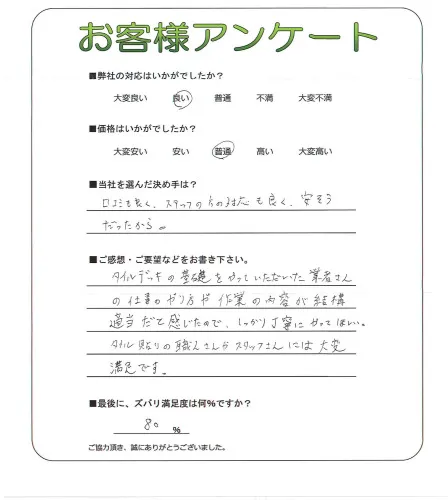 お客様アンケート
■弊社の対応はいかがでしたか?
大変良い 良い 普通 不満 大変不満
■価格はいかがでしたか?
大変安い 安い 普通 高い 大変高い
■当社を選んだ決め手は?
口コミも良く、スタッフの方の対応も良く、安そう
だったから。
■ご感想・ご要望などをお書き下さい。
タイルデッキの基礎をやっていただいた業者さん
の仕事のやり方や作業の内容が結構
適当だと感じたので、しっかり丁寧にやってほしい。
タイル貼りの職人さんやスタッフさんには大変
満足です。
■最後に、ズバリ満足度は何%ですか?
80 %
ご協力頂き、誠にありがとうございました。